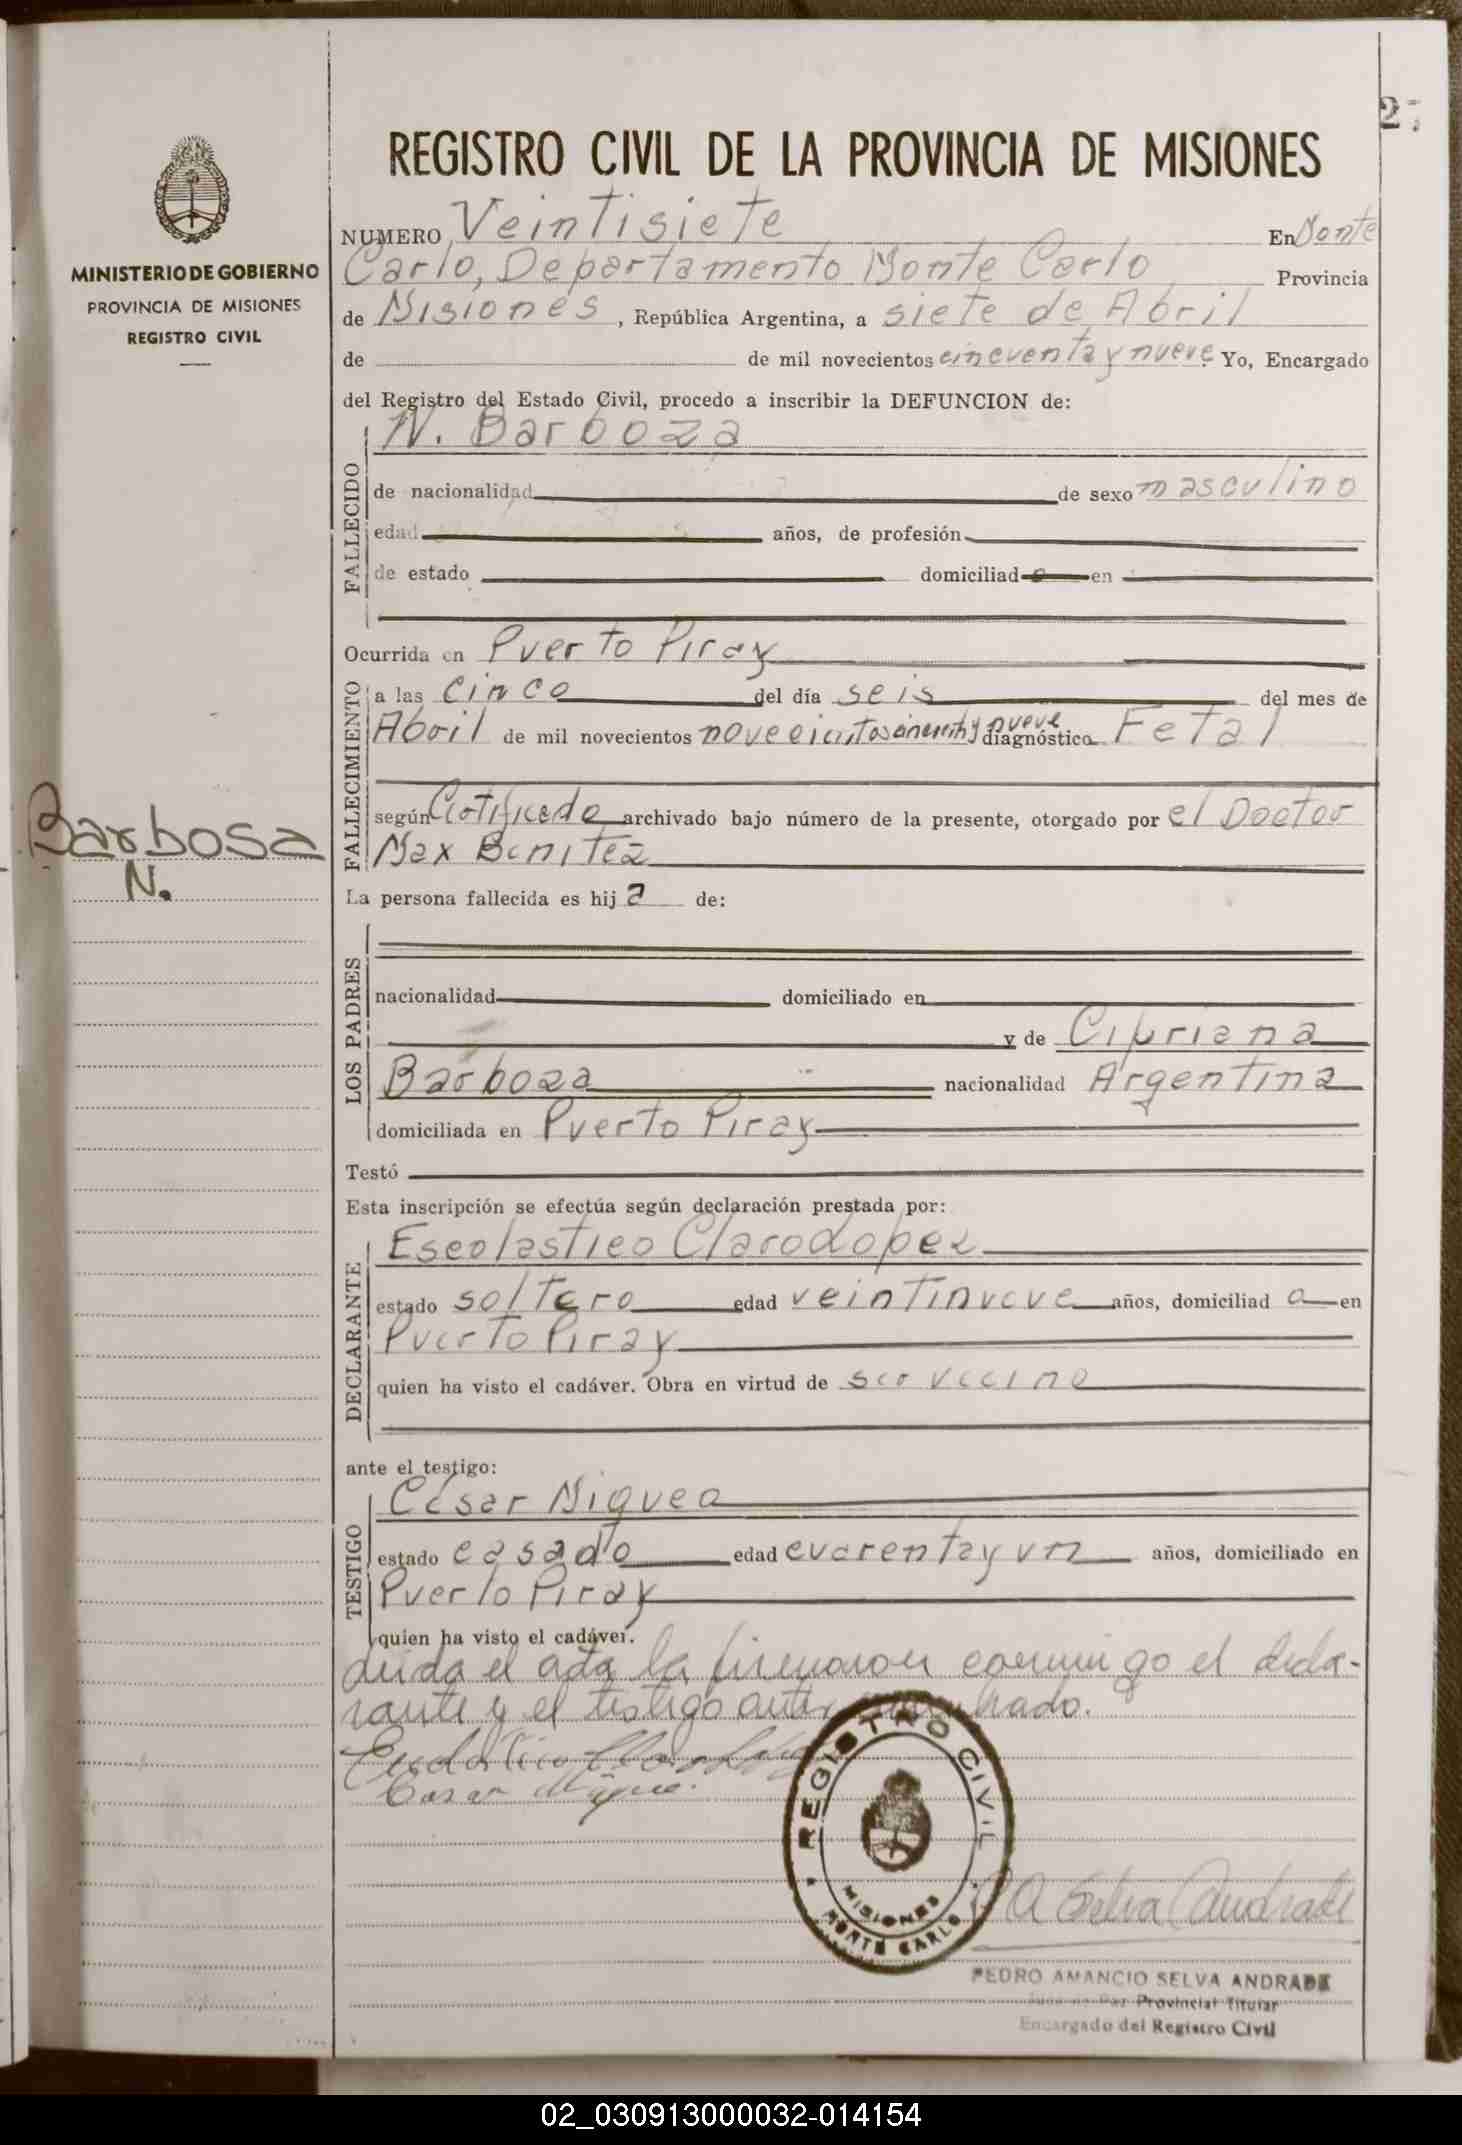 27
REGISTRO CIVIL DE LA PROVINCIA DE MISIONES
MINISTERIO DE GOBIERNO
PROVINCIA DE MISIONES
REGISTRO CIVIL
NUMERO Veintisiete En Monte
Carlo, Departamento Monte Carlo Provincia
de Misiones, República Argentina, a siete de Abril
de de mil novecientos cincuenta y nueve. Yo, Encargado
del Registro del Estado Civil, procedo a inscribir la DEFUNCION de:
FALLECIDO
N. Barboza
de nacionalidad de sexo masculino
edad años, de profesión
de estado domiciliado en
Ocurrida en Puerto Piray
FALLECIMIENTO
a las cinco del día seis del mes de
Abril de mil novecientos novecientos cincuenta y nueve diagnóstico Fetal
según Certificado archivado bajo número de la presente, otorgado por el Doctor
Max Benitez
Barbosa
N.
La persona fallecida es hija de:
LOS PADRES
nacionalidad domiciliado en
y de Cipriana
Barboza nacionalidad Argentina
domiciliada en Puerto Piray
Testó
Esta inscripción se efectúa según declaración prestada por:
DECLARANTE
Escolastico Claro Lopez
estado soltero edad veintinueve años, domiciliado en
Puerto Piray
quien ha visto el cadáver. Obra en virtud de ser vecino
ante el testigo:
TESTIGO
César Miguea
estado casado edad cuarenta y un años, domiciliado en
Puerto Piray
quien ha visto el cadáver.
Leida el acta la firmaron conmigo el decla-
rante y el testigo
Cesar
REGISTRO CIVIL
MISIONES
MONTE CARLO
P A Selva Andrade
PEDRO AMANCIO SELVA ANDRADE
Juez de Paz Provincial Titular
Encargado del Registro Civil
02_030913000032-014154